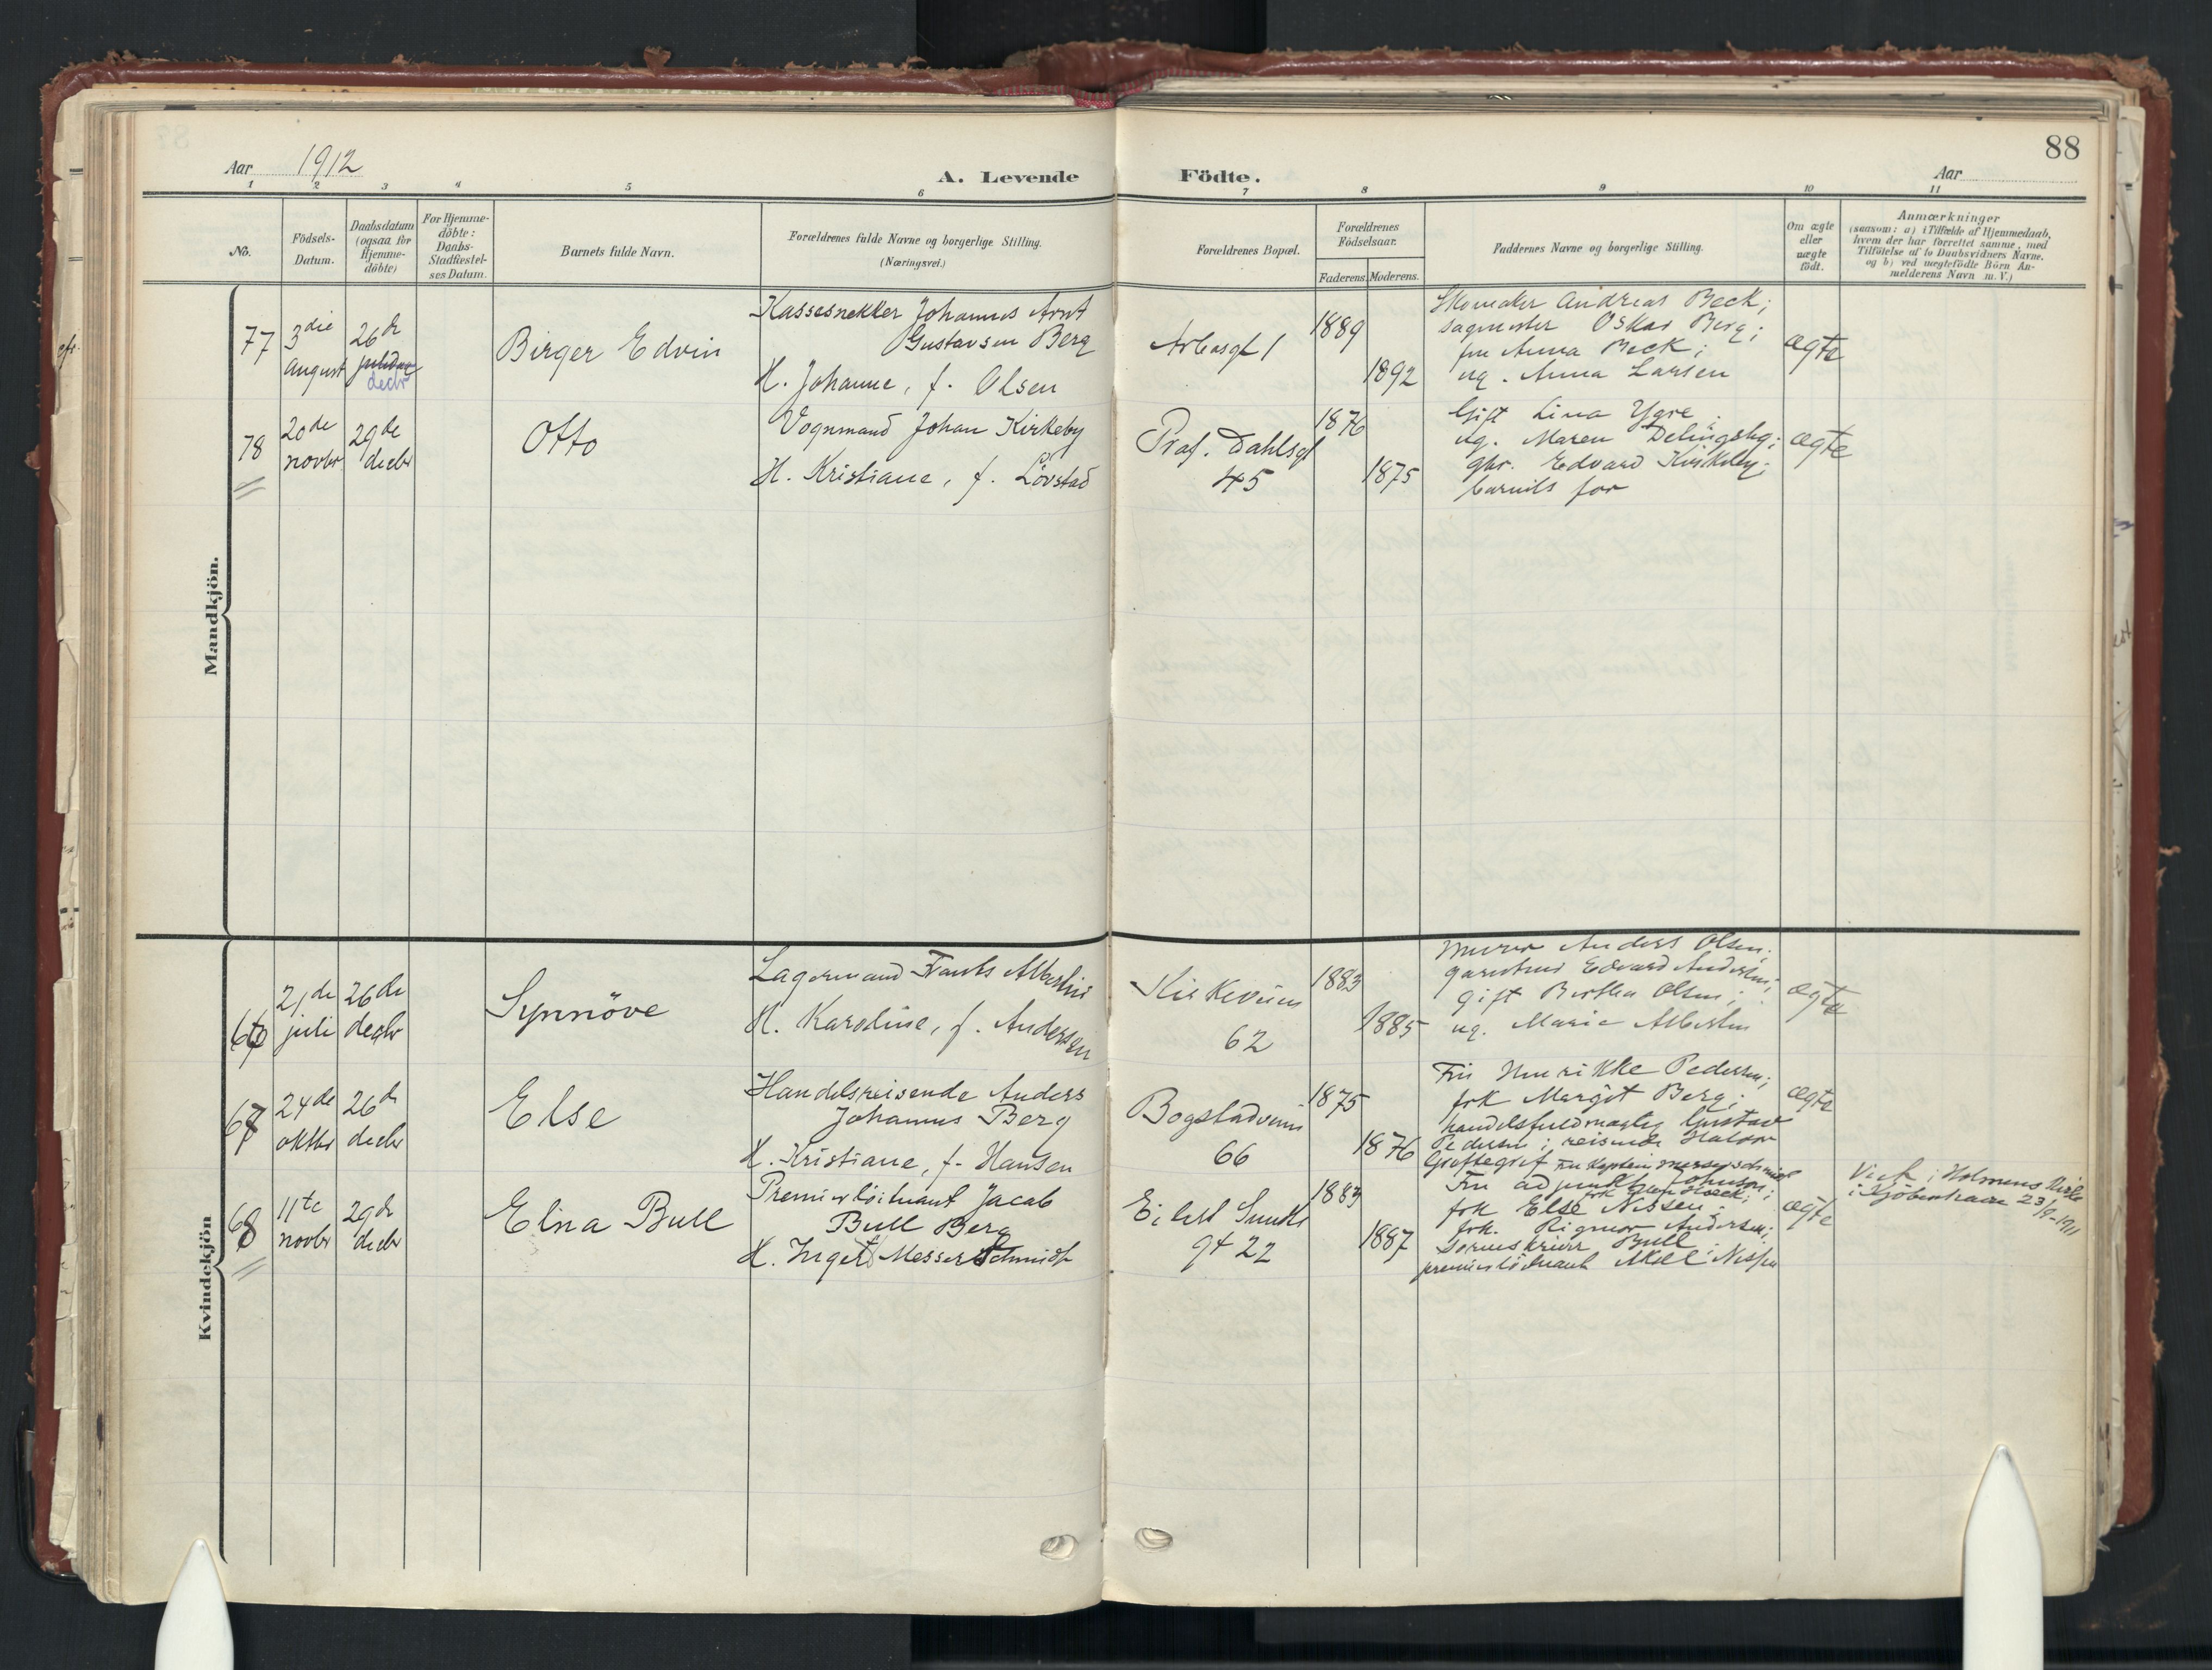 88
Aar 1912
A. Levende Födte.
Aar
1 2 3 4 5 6 7 8 9 10 11
No.
Födsels-
Datum.
Daabsdatum
(ogsaa for
Hjemme-
döbte)
For Hjemme-
döbte:
Daabs-
Stadfæstel-
ses Datum.
Barnets fulde Navn.
Forældrenes fulde Navne og borgerlige Stilling.
(Næringsvei.)
Forældrenes Bopæl.
Forældrenes
Födselsaar.
Faderens. Moderens.
Faddernes Navne og borgerlige Stilling.
Om ægte
eller
uægte
födt.
Anmærkninger
(saasom: a) i Tilfælde af Hjemmedaab,
hvem der har forrettet samme, med
Tilföielse af to Daabsvidners Navne.
og b) ved uægtefödte Börn An-
melderens Navn m. V.)
Mandkjön.
77
3die
august
26de
decbr
Birger Edvin
Kassesnekker Johannes Arnt
Gustavsen Berg
H. Johanne, f. Olsen
1889
1892
Skomaker Andreas Beck;
sagmester Oskar Berg;
fru Anna Beck;
ug. Anna Larsen
ægte
78
20de
novbr
29de
decbr
Otto
Vognmand Johan Kirkeby
H. Kristiane, f. Lövstad
Prof. Dahlsgt
45
1876
1875
Gift Lina Ygre
ug. Maren
gbr. Edvard Kirkeby;
barnets far
ægte
Kvindekjön
66
21de
juli
26de
decbr
Synnöve
Lagermand Frants Albertin
H. Karoline, f. Andersen
Kirkeveien
62
1883
1885
murer Anders Olsen;
Edvard Andersen;
gift Bertha Olsen;
ug. Marie
ægte
67
24de
oktbr
26de
decbr
Else
Handelsreisende Anders
Johannes Berg
H. Kristiane, f. Hansen
Bogstadveien
66
1875
1876
Fru Henrikke Pedersen;
frk Margit Berg;
handelsfuldmægtig Gustav
Pedersen; reisende Halvor
ægte
68
11te
novbr
29de
decbr
Elna Bull
Premierlöitnant Jacob
Bull Berg
H. Inger Messerschmidt
Eilert Sundts
gt 22
1883
1887
Fru kaptein Messerschmidt
Fru adjunkt Johnson;
frk Else Nissen;
frk. Rigmor Andersen;
Bull;
premierlöitnant Aksel Nissen
ægte
Viet i Holmens Kirke
i Kjöbenhavn 23/9-1911